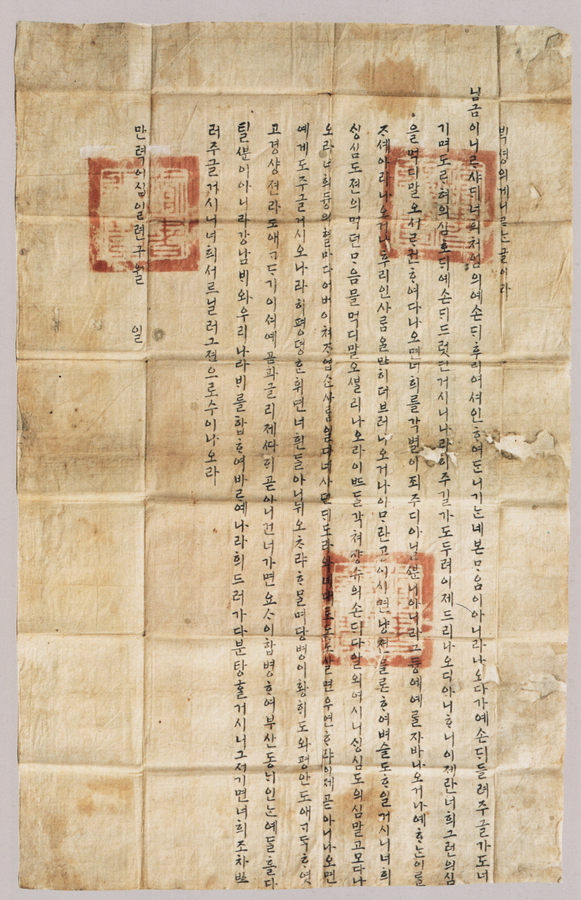 ᄇᆡᆨ셩의게니ᄅᆞᄂᆞᆫ글이라
님금이니ᄅᆞ샤ᄃᆡ너희처엄의예손ᄃᆡ후리여셔인ᄒᆞ여ᄃᆞᆫ니기ᄂᆞᆫ네본ᄆᆞᄋᆞᆷ이아니라나오다가예손ᄃᆡ들려주글가도너
기며도ᄅᆞ혀의심ᄒᆞᄃᆡ예손ᄃᆡ드럿던거시니나라히주길가도두려이제드리나오디아니ᄒᆞ니이제란너희그런의심
을먹디말오서ᄅᆞ권ᄒᆞ여다나오면너희를각별이죄주디아닐ᄲᅮᆫ니아니라그듕에예ᄅᆞᆯ자바나오거나예ᄒᆞᄂᆞᆫ이ᄅᆞᆯ
ᄌᆞ셰아라나오거나후리인사ᄅᆞᆷ을만히더브러나오거나아ᄆᆞ란공이시면냥쳔믈론ᄒᆞ여벼슬도ᄒᆞ일거시니너희
ᄉᆡᆼ심도젼의먹던ᄆᆞᄋᆞᆷ믈먹디말오ᄲᆞᆯ리나오라이ᄠᅳ들각쳐쟝슈의손ᄃᆡ다알외여시니ᄉᆡᆼ심도의심말고모다나
오라너희듕의 다어버이쳐ᄌᆞ업슨사ᄅᆞᆷ일다네사던ᄃᆡ도라와녜대로도로살면우연ᄒᆞ랴이제곧아니나오면
예게도주글거시오나라히평뎡ᄒᆞᆫ휘면너흰ᄃᆞᆯ아니뉘오ᄎᆞ랴ᄒᆞ믈며당병이황ᄒᆡ도와평안도애ᄀᆞᄃᆞᆨᄒᆞ엿
고경샹젼라도애ᄀᆞᄃᆞ기이셔예곧과글리제ᄯᅡ히곧아니건너가면요ᄉᆞ이합병ᄒᆞ여부산동ᄂᆡ인ᄂᆞᆫ예ᄃᆞᆯ흘다
틸ᄲᅮᆫ이아니라강남ᄇᆡ와우리나라ᄇᆡ를합ᄒᆞ여바ᄅᆞ예나라희드러가다분탕ᄒᆞᆯ거시니그저기면너희조차ᄡᅳ
러주글거시니너희서ᄅᆞ닐러그젼으로수이나오라
만력이십일년구월 일